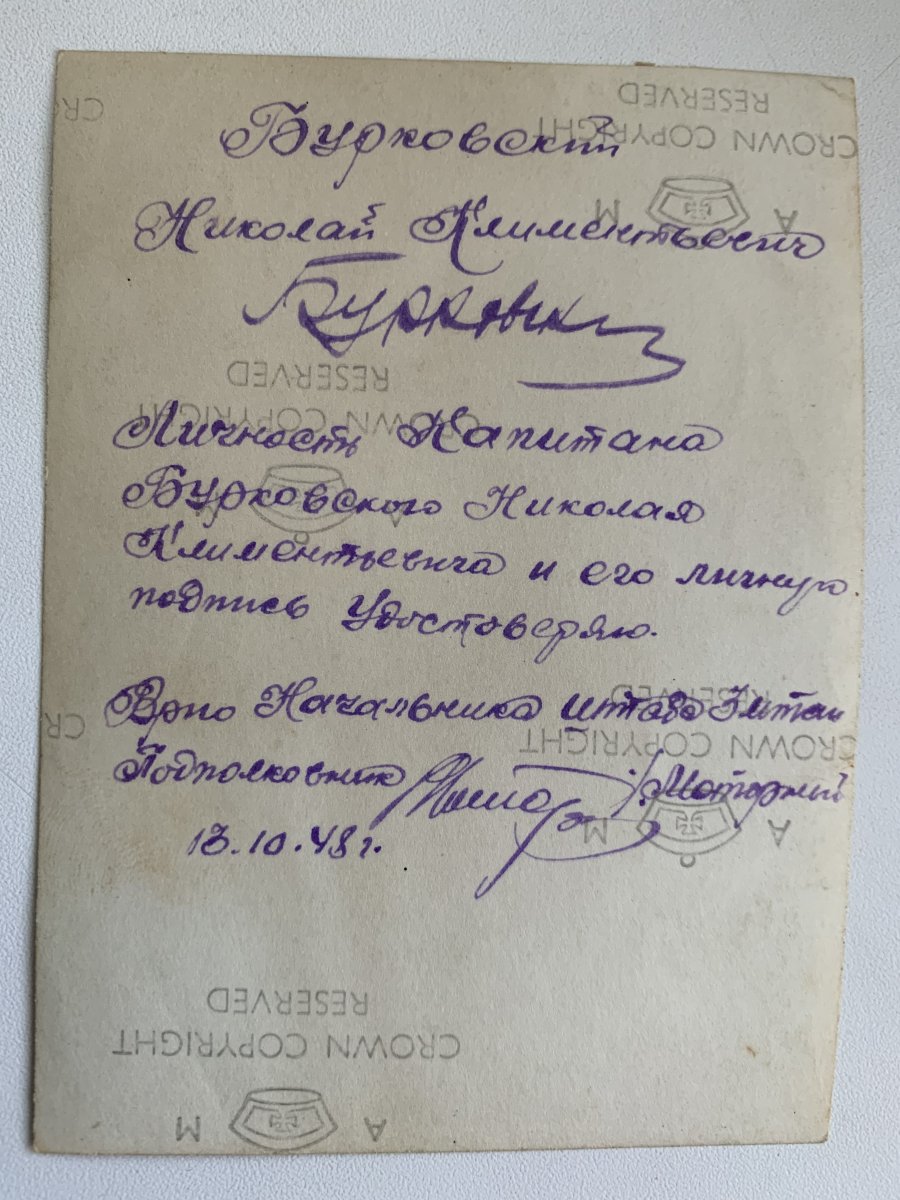 CR
CROWN COPYRIGHT
RESERVED
A M
Бурковский
Николай Климентьевич
Бурковск
CROWN COPYRIGHT
RESERVED
A
Личность Капитана
Бурковского Николая
Климентьевича и его личную
подпись Удостоверяю.
Врио Начальника штаба
CR
CROWN COPYRIGHT
RESERVED
A M
Подполковник Моторный
13.10.48 г.
CROWN COPYRIGHT
RESERVED
A M